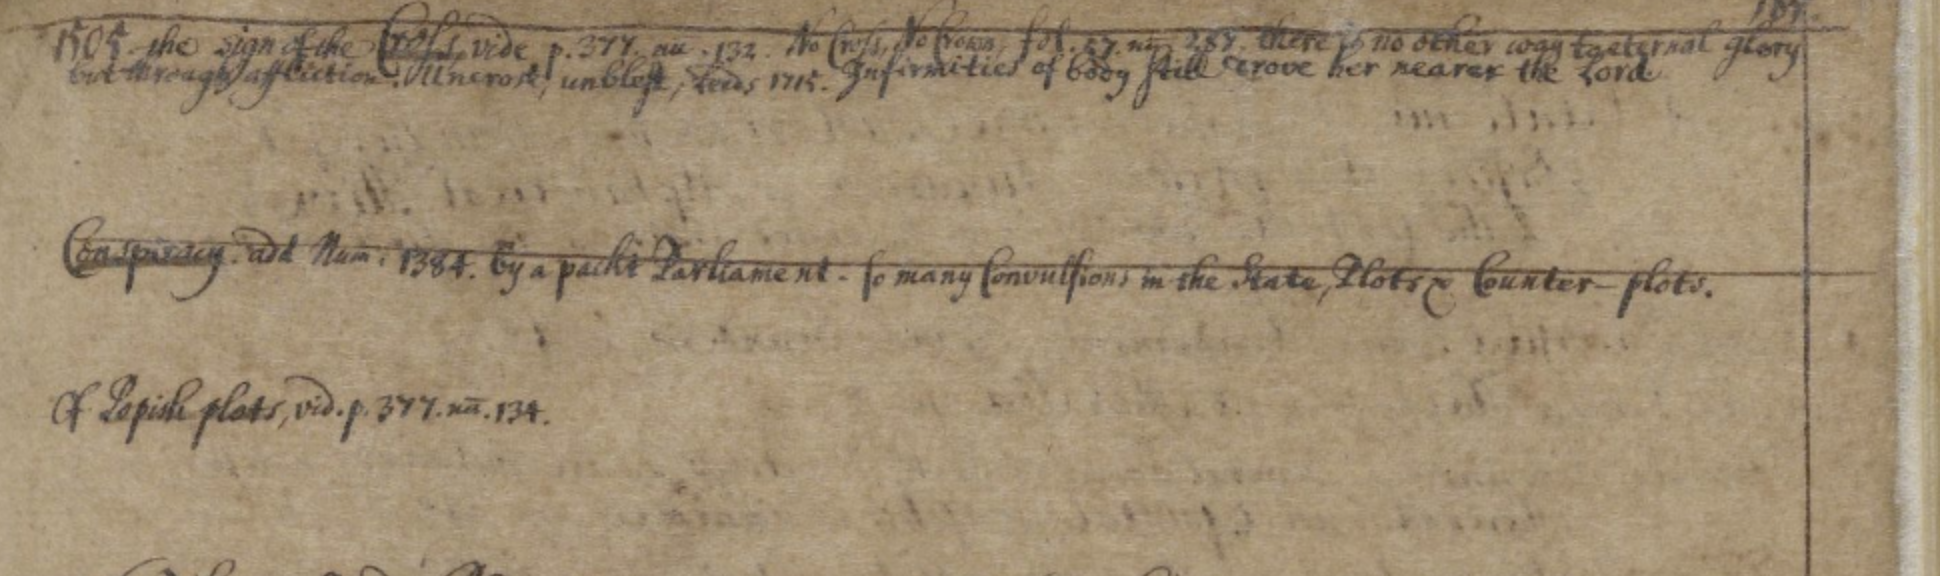 1505. the sign of the Cross, vide p. 377. nu. 132. No Cross, No Crown, fol. 57. nu. 287. there is no other way to eternal glory
but through affliction. Uncrost, unblest, Leeds 1715. Infirmities of body still drove her nearer the Lord.
Conspiracy. add Num: 1384. By a packt Parliament - so many Convulsions in the State, Plots & Counter-plots.
Of Popish plots, vid. p. 377. nū. 134.